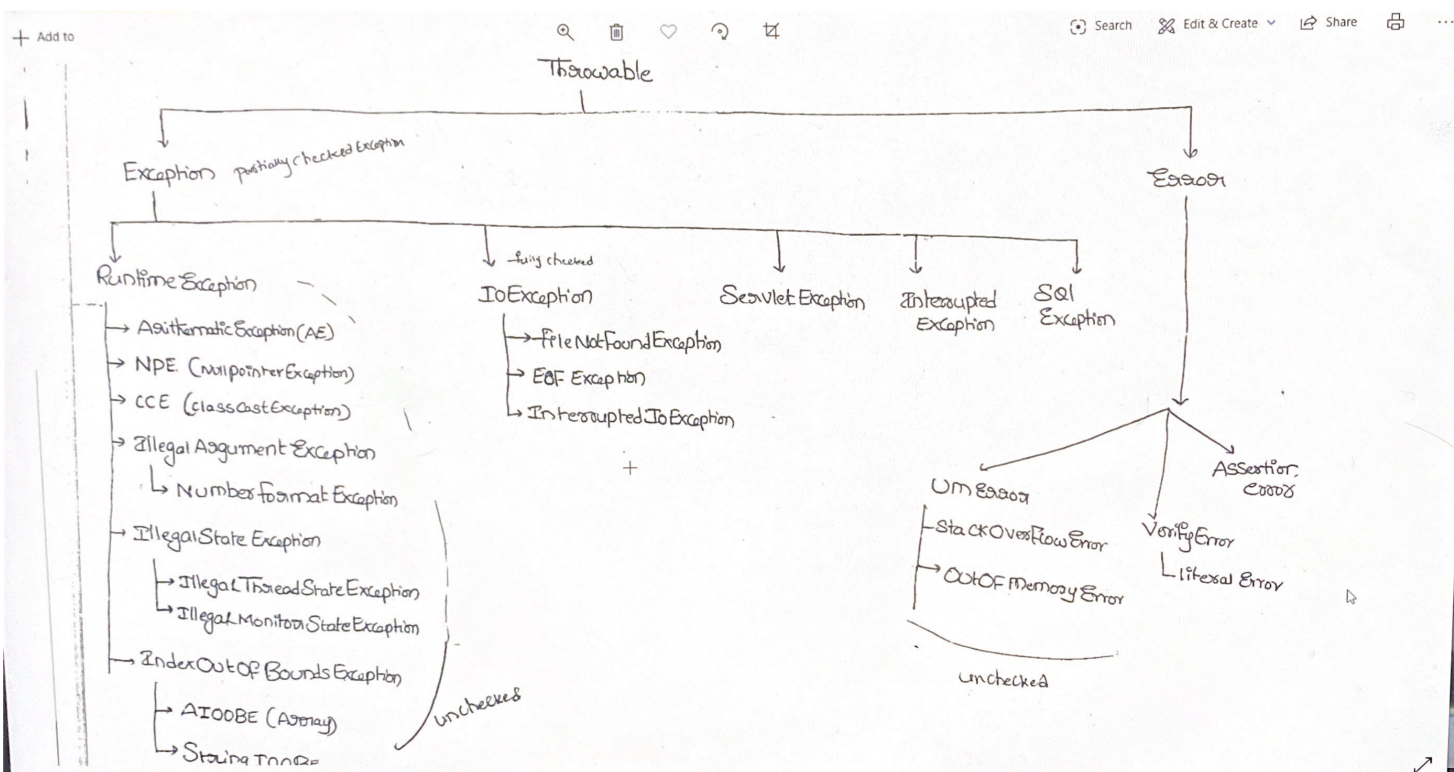 Add to
Search
Edit & Create
Share
Throwable
Exception partially checked Exception
Error
Runtime Exception
ArithematicException (AE)
NPE. (NullpointerException)
CCE (ClassCastException)
Illegal Argument Exception
Number format Exception
IllegalState Exception
IllegalThreadStateException
IllegalMonitorStateException
IndexOutOf Bounds Exception
AIOOBE (Array)
unchecked
fully checked
IoException
fileNotFoundException
EOF Exception
InterruptedIoException
ServletException
Interrupted
Exception
SQl
Exception
VM Error
StackOverFlowError
OutOf Memory Error
unchecked
VerifyError
literal Error
Assertion
error